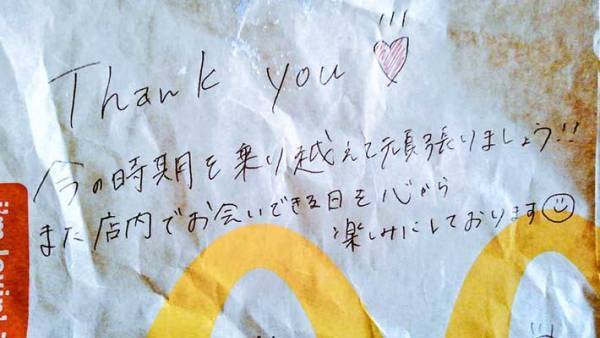 Thank you
今の時期を乗り越えて頑張りましょう!!
また店内でお会いできる日を心から
楽しみにしております
i'm lovin'